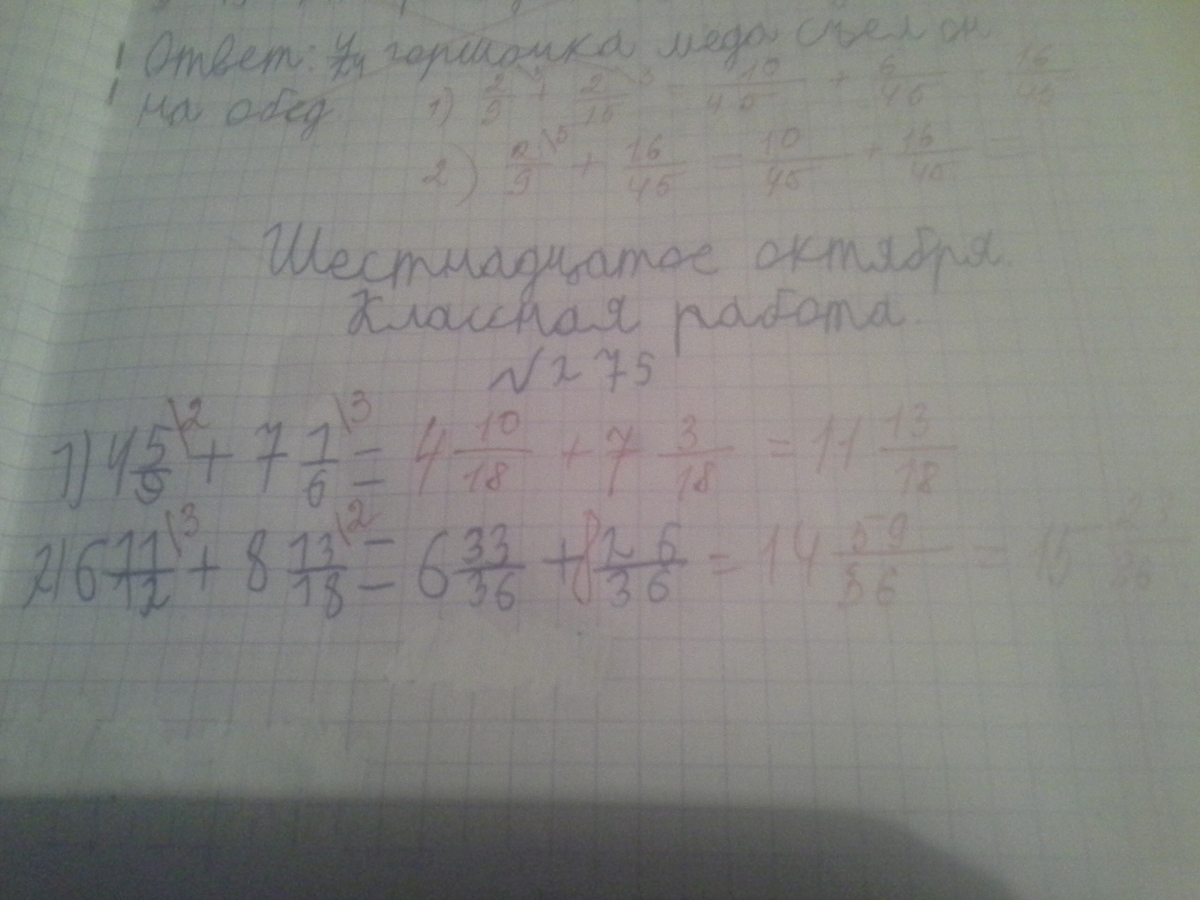 Ответ: 7/24 горшочка меда съел он
на обед.
1) 2/9 \5 + 2/15 \3 = 10/45 + 6/45 = 16/45
2) 2/9 \5 + 16/45 = 10/45 + 16/45 =
Шестнадцатое октября.
Классная работа.
№275
1) 4 5/9 \2 + 7 1/6 \3 = 4 10/18 + 7 3/18 = 11 13/18
2) 6 11/12 \3 + 8 13/18 \2 = 6 33/36 + 8 26/36 = 14 59/36 = 15 23/36